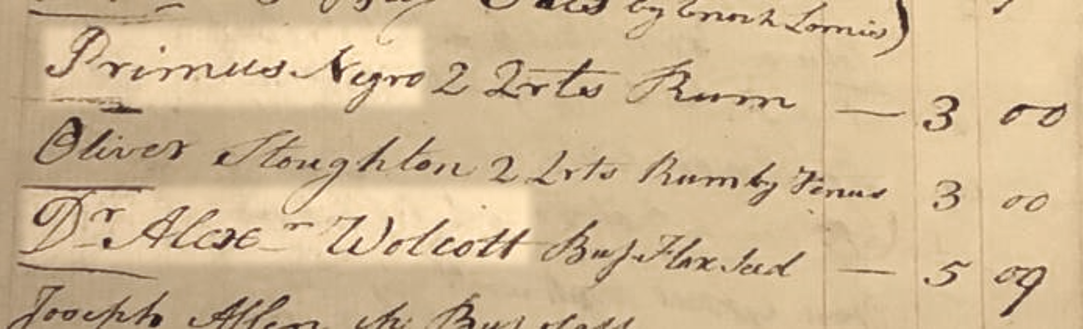 by Enoch Lomis)
Primus Negro 2 Qrts Rum — 3 00
Oliver Stoughton 2 Qrts Rum by Venus 3 00
Dr Alexr Wolcott Bus Flax Seed — 5 09
Joseph Allen